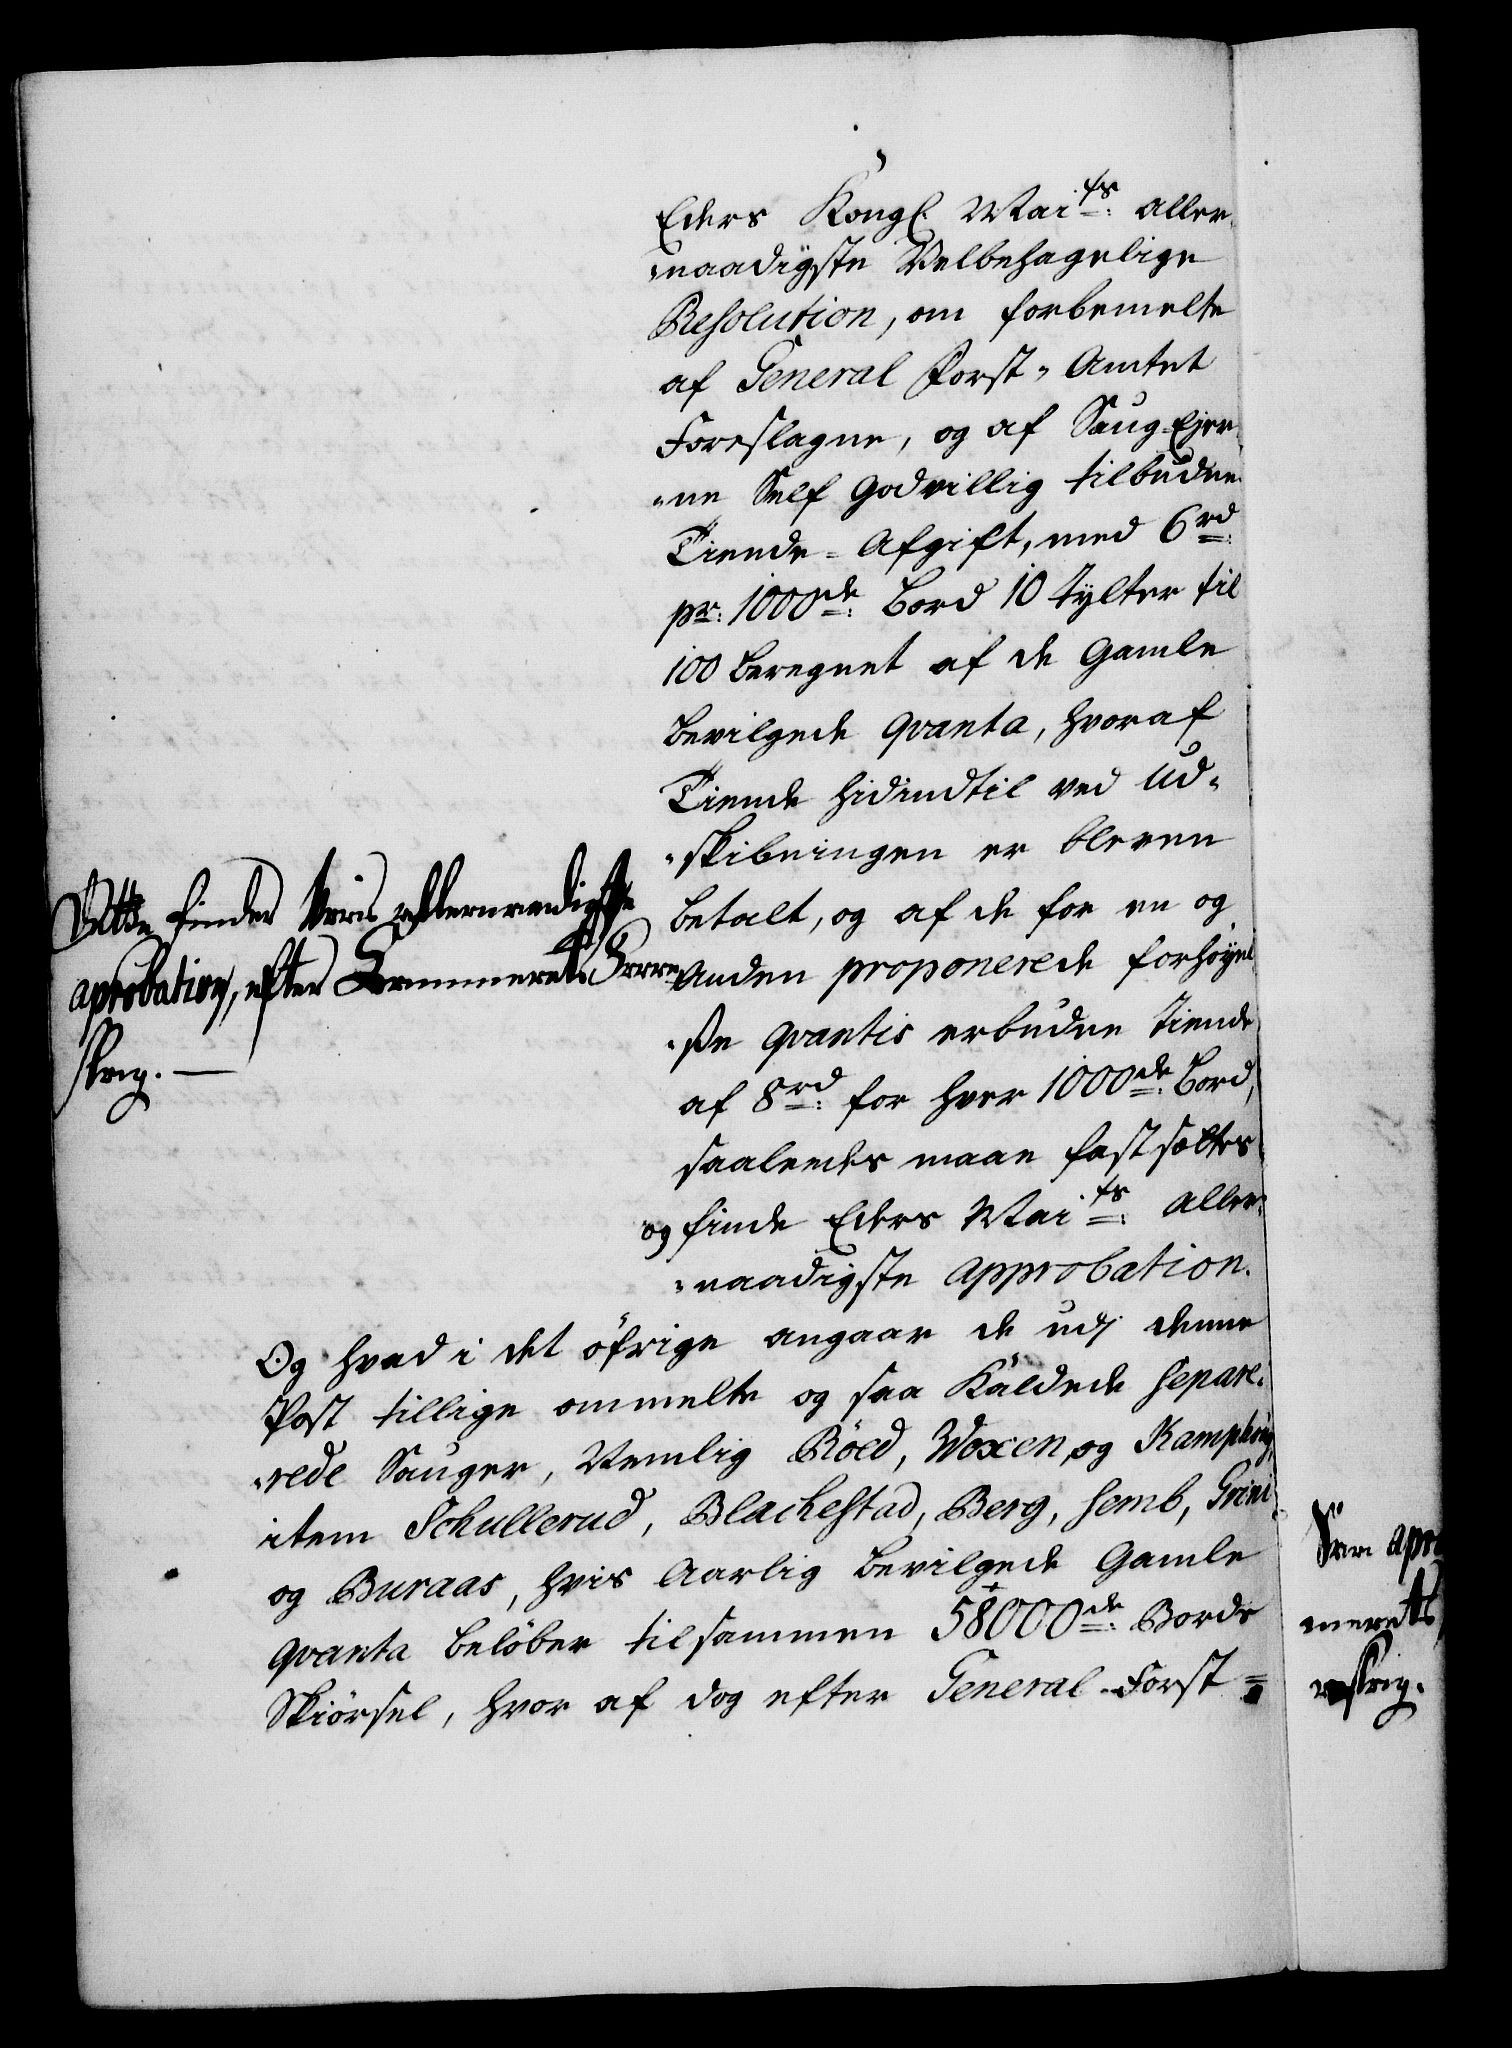 Eders Kongl. Mai<sup>ts</sup>: aller„
„naadigste Velbehagelige
Resolution, om forbemelte
af General Forst-Amtet
Foreslagne, og af Saug-Ejer„
„ne Self Godvillig tilbudne
Tiende-Afgift, med 6 rd:
pr: 1000de: Bord 10 Tylter til
100 beregnet af de Gamle
bevilgede Qvanta, hvoraf
Tiende hidindtil ved Ud„
„skibningen er bleven
betalt, og af de for en og
Anden proponerede forhøyel
„ße Qvantis erbudne Tiende
af 8 rd: for hver 1000de: Bord,
saaledes maae fastsættes
og finde Eders Mai<sup>ts</sup>: Aller„
„naadigste Approbation.
Dette finder Vores allernaadigste
aprobation, efter Cammerets Fore
skrig. —
Og hvad i det öfrige angaar de udj denne
Post tillige ommelte og saa Kaldede Separe„
„rede Sauger, Nemlig Röed, Woxen, og Kamphoug,
item Schullerud, Blachestad, Berg, Semb, Grini
og Buraas, hvis Aarlig bevilgede Gamle
Qvanta belöber tilsammen 58000de: Bords
Skiörsel, hvor af dog efter General-Forst=
apro
merets
skrig.